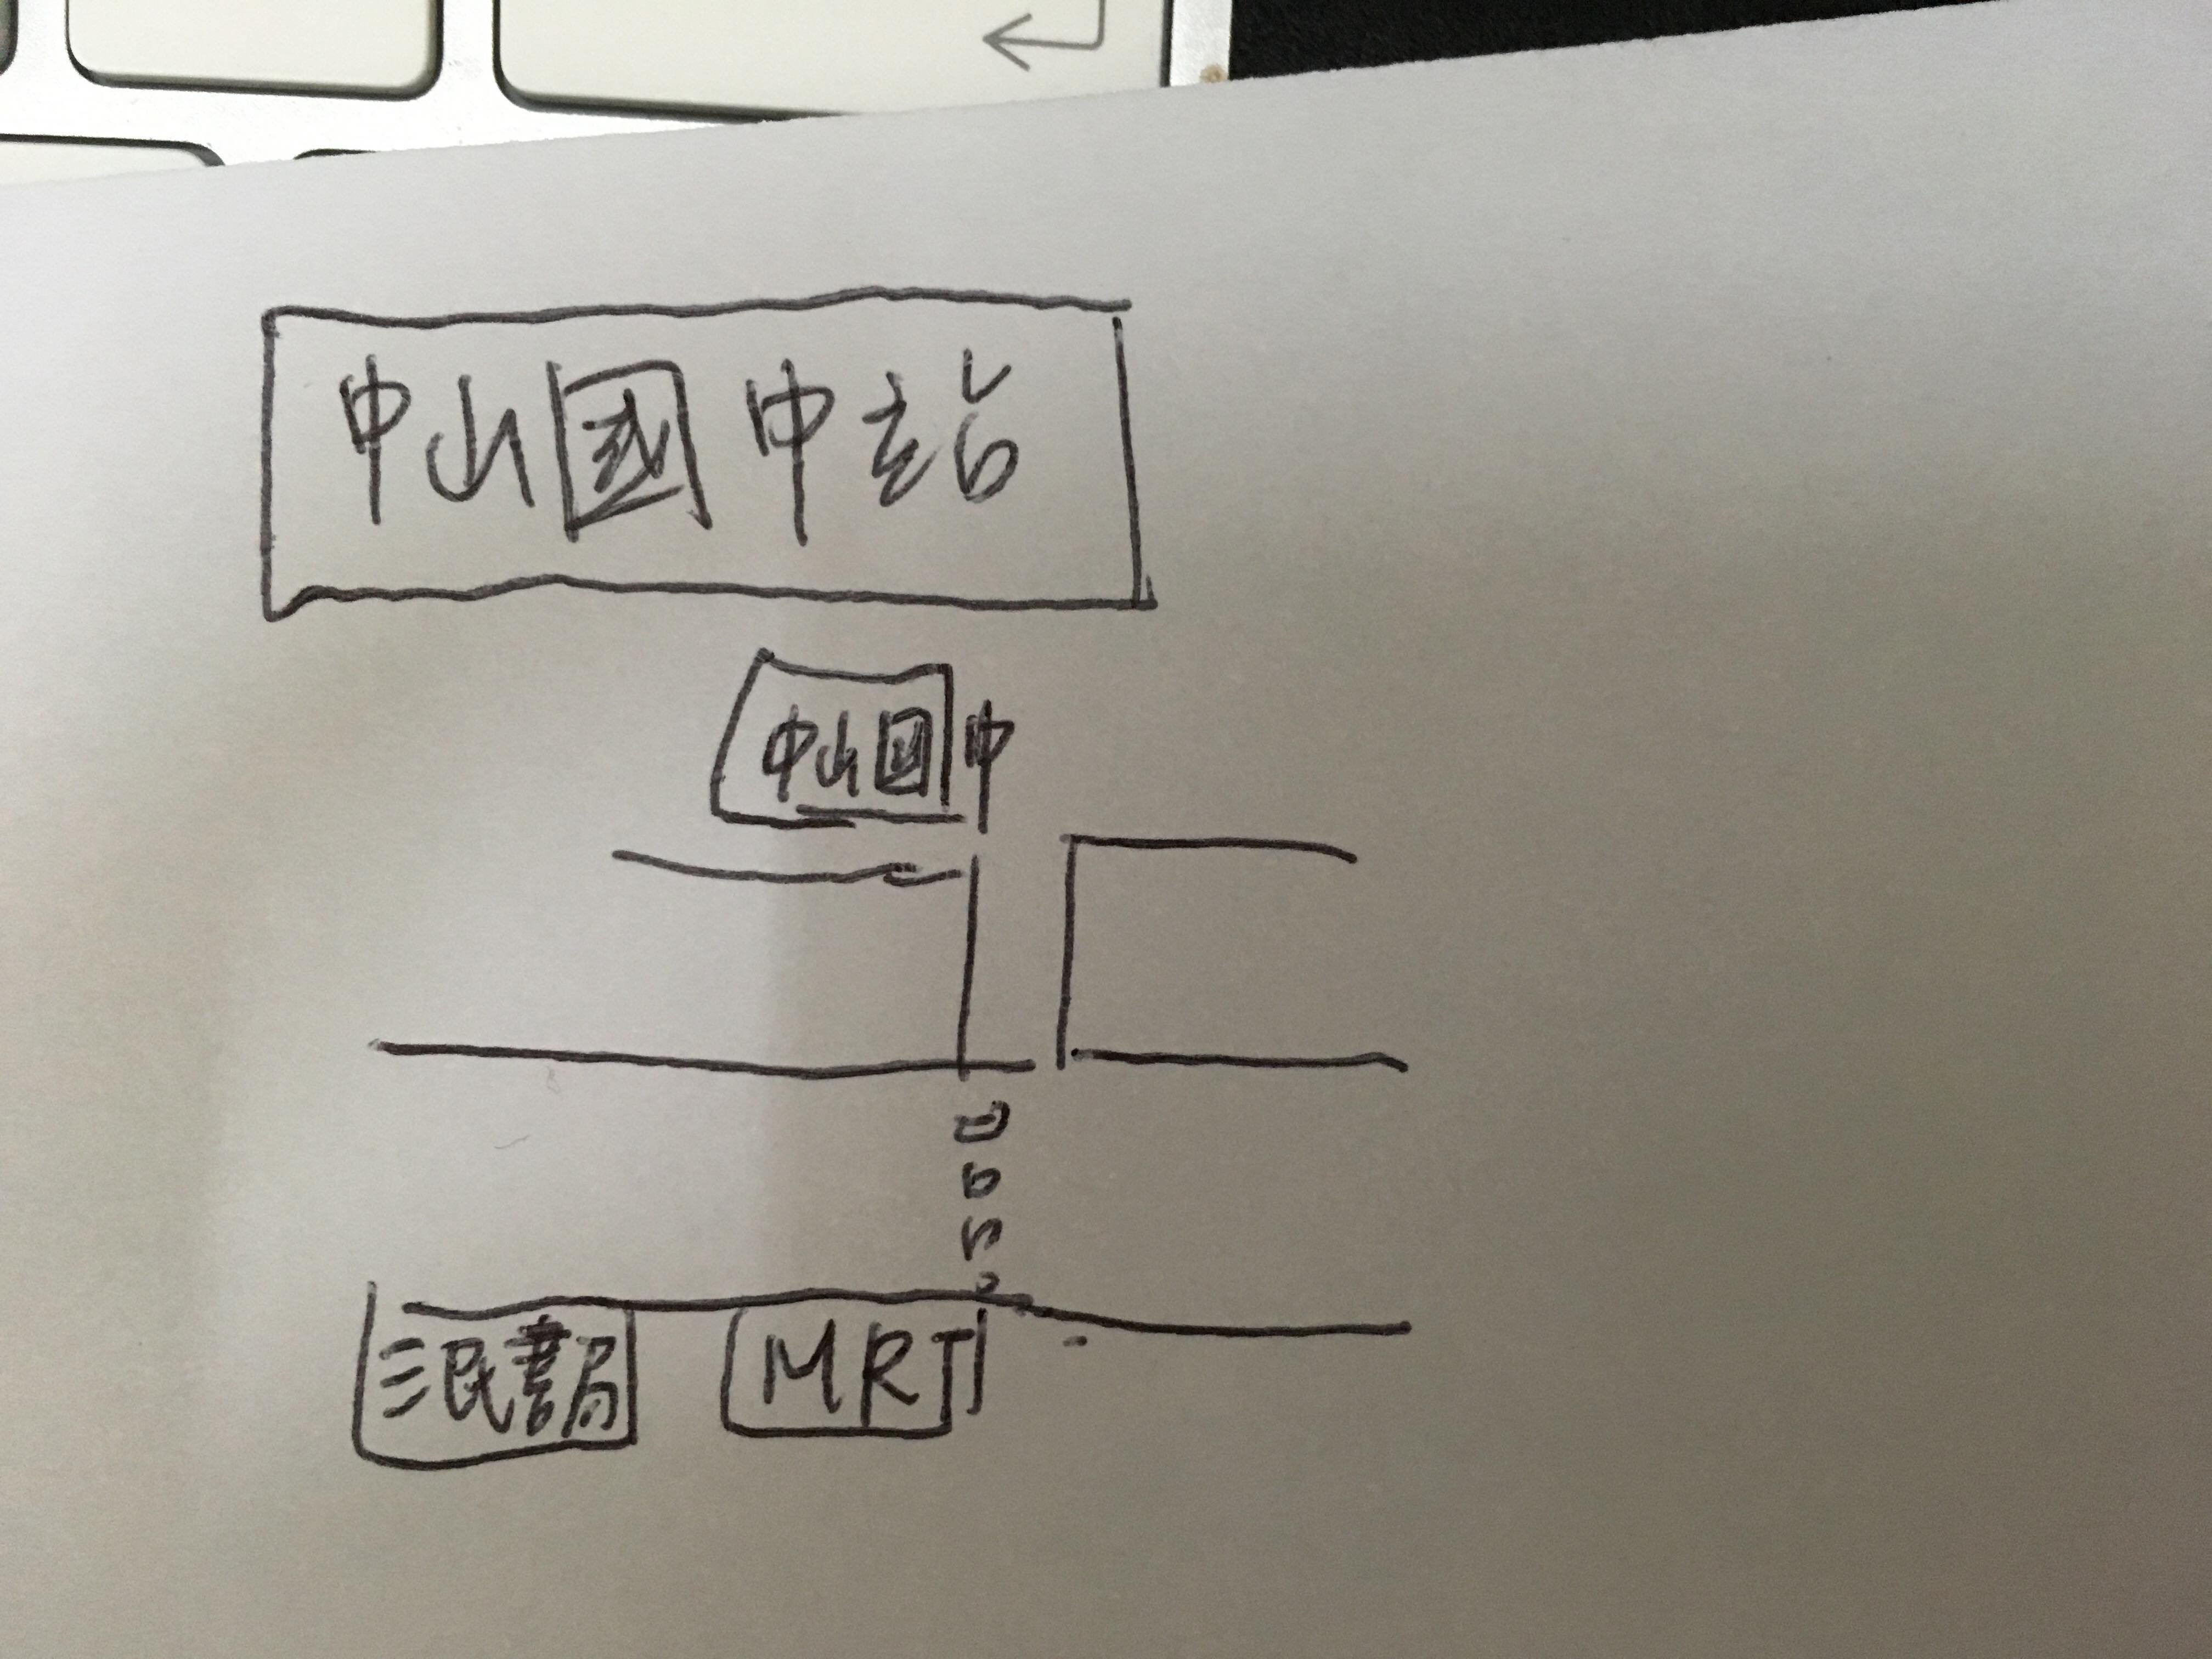 中山國中站
中山國中
三民書局
MRT